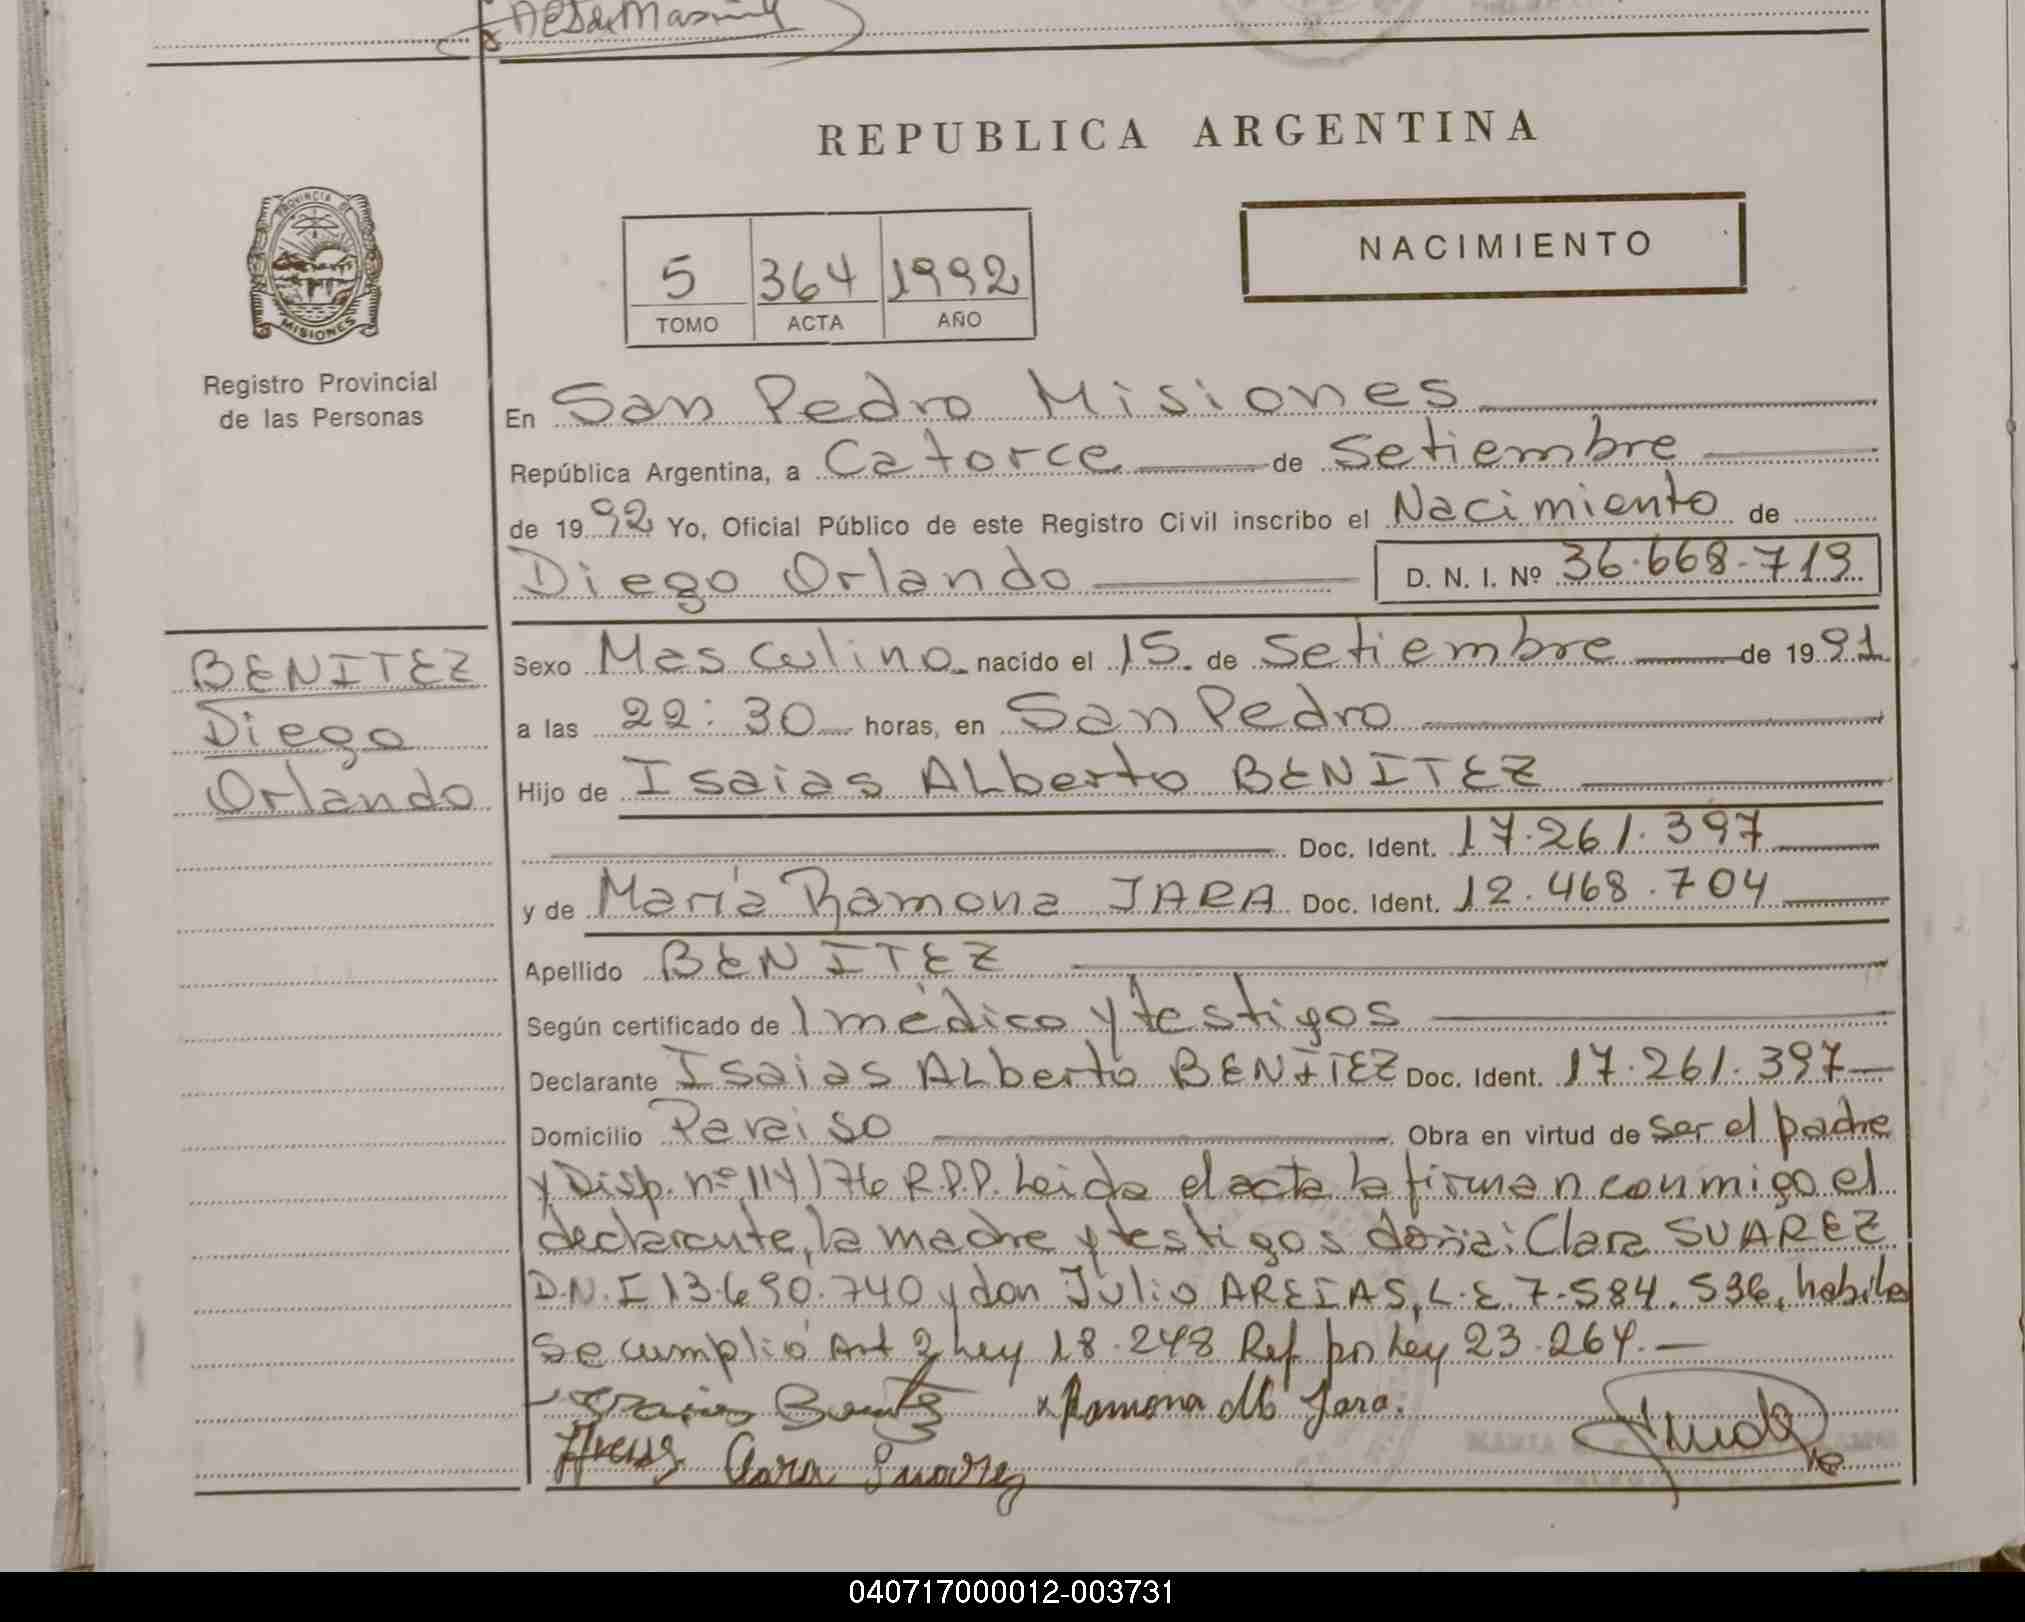 REPUBLICA ARGENTINA
NACIMIENTO
5 364 1992
TOMO ACTA AÑO
PROVINCIA DE
MISIONES
Registro Provincial
de las Personas
En San Pedro Misiones
República Argentina, a Catorce de Setiembre
de 1992 Yo, Oficial Público de este Registro Civil inscribo el Nacimiento de
Diego Orlando D. N. I. Nº 36.668.719
BENITEZ
Diego
Orlando
Sexo Masculino nacido el 15 de Setiembre de 1991
a las 22:30 horas, en San Pedro
Hijo de Isaias ALberto BENITEZ
Doc. Ident. 17.261.397
y de María Ramona JARA Doc. Ident. 12.468.704
Apellido BENITEZ
Según certificado de 1 médico y testigos
Declarante Isaias ALberto BENITEZ Doc. Ident. 17.261.397
Domicilio Paraiso Obra en virtud de ser el padre
y Disp. nº 114/76 R.P.P. Leida el acta la firman conmigo el
declarante, la madre y testigos doña: Clara SUAREZ
D.N.I 13.690.740 y don Julio AREIAS, L.E. 7.584.536, habiles
Se cumplió Art 2 Ley 18.248 Ref por Ley 23.264.—
Isaias Benitez x Ramona M Jara.
Clara Suarez
040717000012-003731